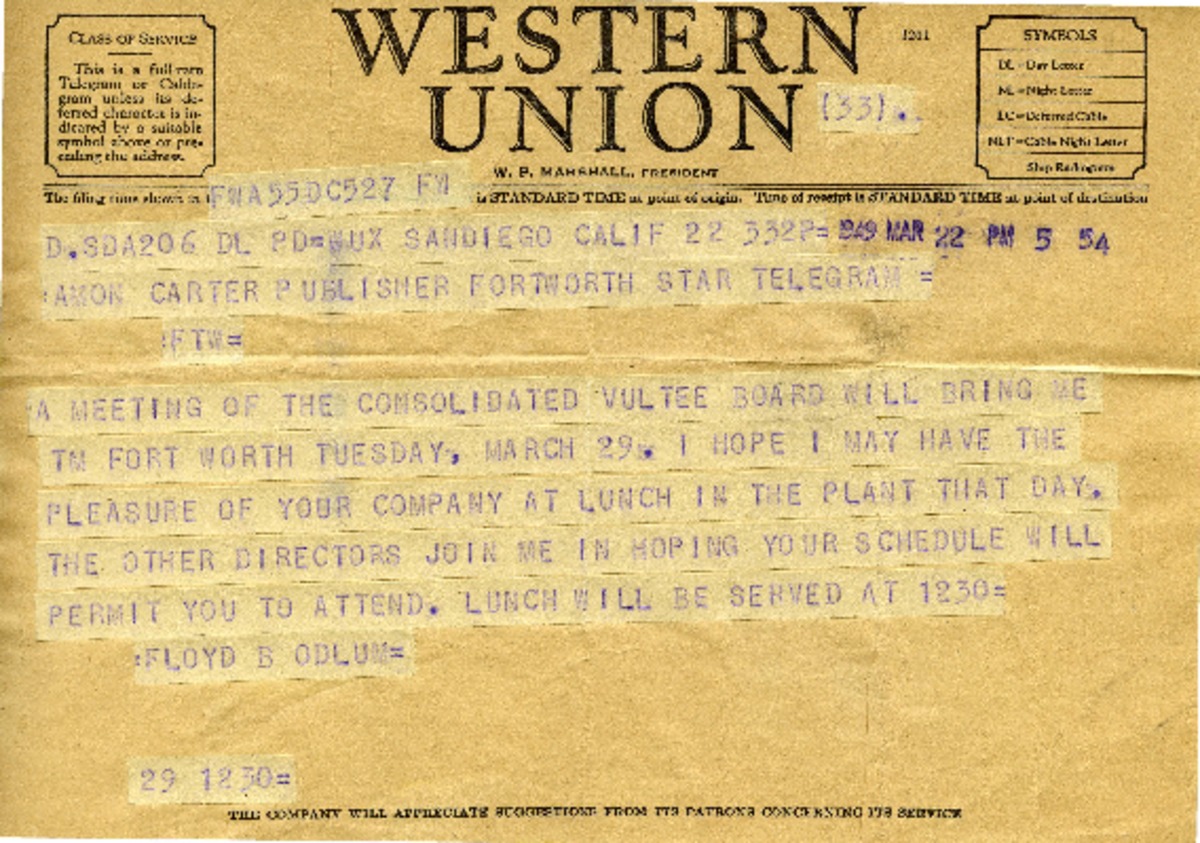 CLASS OF SERVICE
This is a full-rate
Telegram or Cable-
gram unless its de-
ferred character is in-
dicated by a suitable
symbol above or pre-
ceding the address.
WESTERN
UNION
1201
(33).
W. P. MARSHALL, PRESIDENT
SYMBOLS
DL=Day Letter
NL=Night Letter
LC=Deferred Cable
NLT=Cable Night Letter
Ship Radiogram
FWA55DC527 FW
The filing time shown in is STANDARD TIME at point of origin. Time of receipt is STANDARD TIME at point of destination
D.SDA206 DL PD=WUX SANDIEGO CALIF 22 332P= 1949 MAR 22 PM 5 54
:AMON CARTER PUBLISHER FORTWORTH STAR TELEGRAM =
:FTW=
A MEETING OF THE CONSOLIDATED VULTEE BOARD WILL BRING ME
TM FORT WORTH TUESDAY, MARCH 29. I HOPE I MAY HAVE THE
PLEASURE OF YOUR COMPANY AT LUNCH IN THE PLANT THAT DAY.
THE OTHER DIRECTORS JOIN ME IN HOPING YOUR SCHEDULE WILL
PERMIT YOU TO ATTEND. LUNCH WILL BE SERVED AT 1230=
:FLOYD B ODLUM=
29 1230=
THE COMPANY WILL APPRECIATE SUGGESTIONS FROM ITS PATRONS CONCERNING ITS SERVICE